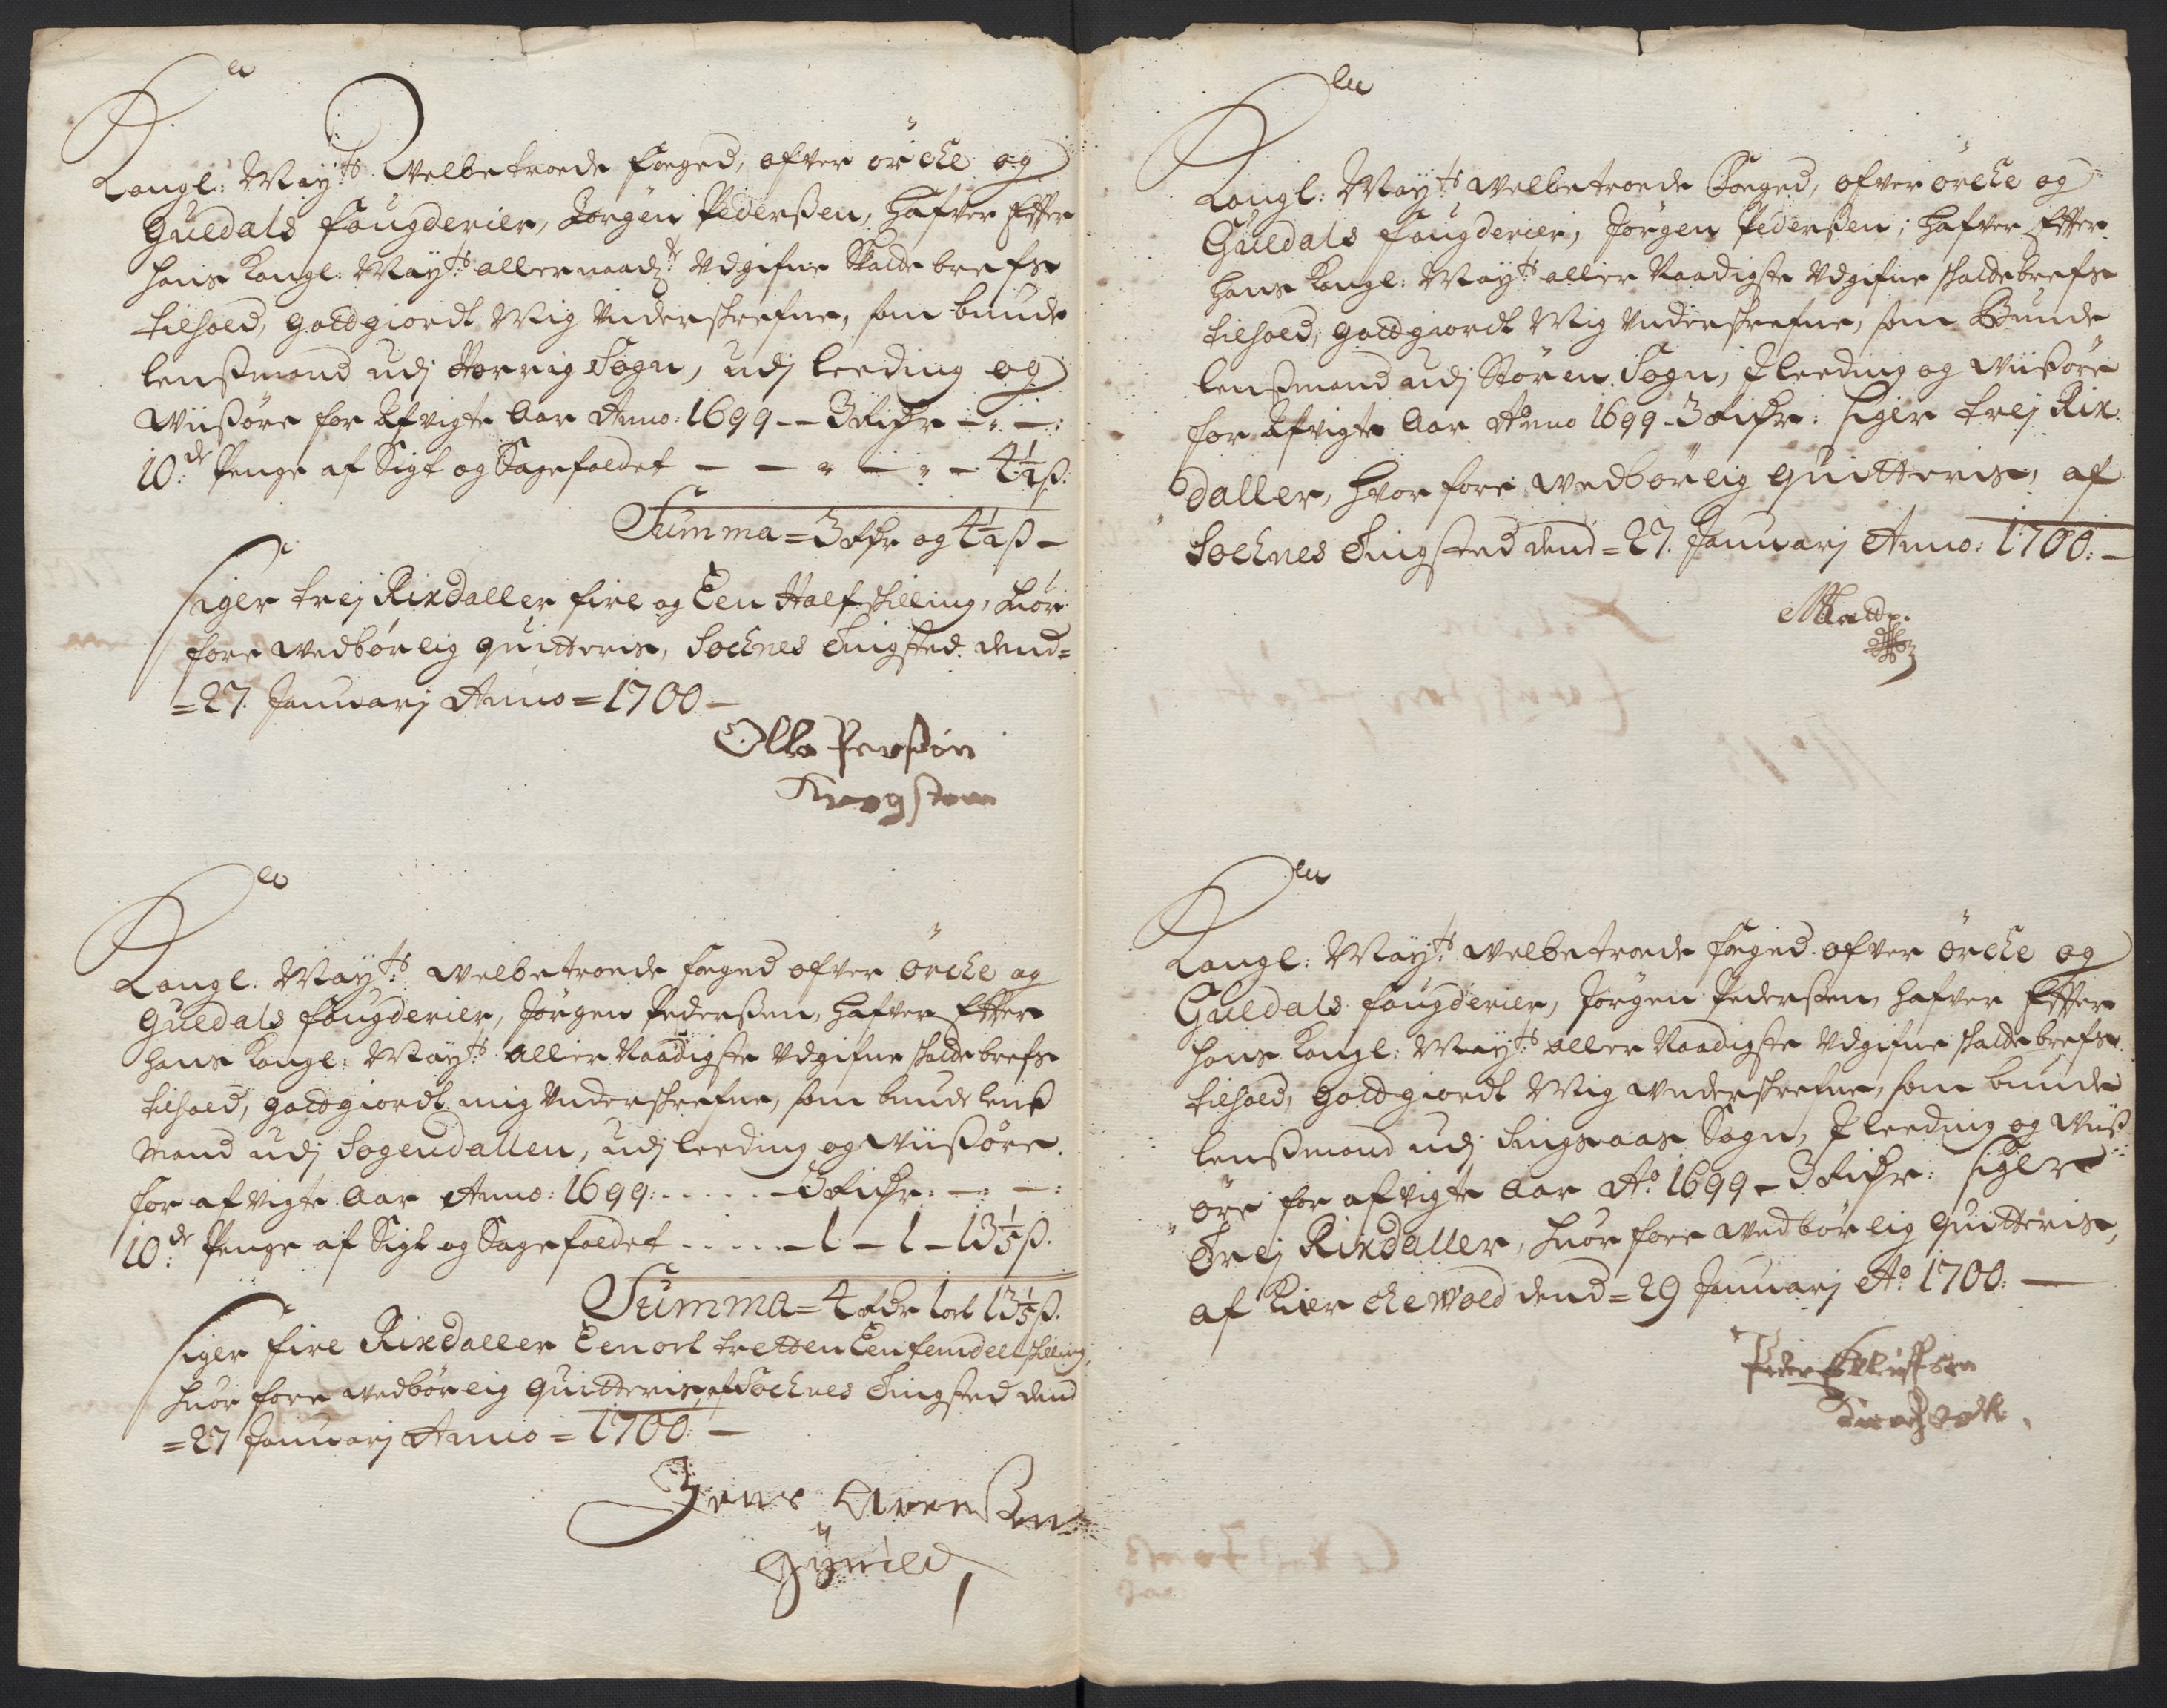 Kongl: May:ts Velbetroede foged, ofver örche og
Guldals fougderier, Jorgen Pederßen, hafver Effter
hans Kongl: May:ts allernaad:te Udgifne Skaldebrefs
tilhold, godtgiordt Mig Underskrefne, som bunde
lenßmand udj Horrig Sogn, udj leeding og
Viißöre for Afvigte Aar Anno: 1699 -- 3 Rixdr -:-:
10:de Penge af Sigt og Sagefaldet - - " - " - 4½ ß.
Summa = 3 Rdr og 4½ ß -
siger trej Rixdaller fire og Een Half skilling, huor
fore vedbörlig quitteris, Soknes Tingsted dend =
= 27. Januarj Anno = 1700 -
Olle Perßön
Krogstom
Kongl: May:ts velbetroede foged ofver örche og
Guldals fougderier, Jörgen Pederßen, hafver Effter
hans Kongl: May:ts aller Naadigste Udgifne skaldebrefs
tilhold, godtgiordt mig Underskrefne, som bunde lenß
Mand udj Sogendallen, udj leeding og Viißöre.
for afvigte Aar Anno: 1699: ..... - 3 Rixdr: -: -:
10:de Penge af Sigt og Sagefaldet ..... - 1 - 1 - 13⅕ ß.
Summa = 4 Rdr 1 ort 13⅕ ß.
siger fire Rixdaller Een ort tretten Een femdeel skilling,
huor fore vedbörlig quitteris, af Soknes Tingsted dend
= 27 Januarj Anno = 1700: -
Jens Arenßen
Kongl: May:ts velbetroede Foeged, ofver örche og
Guldals fougderier, Jörgen Pederßen; hafver Effter
hans Kongl: May:ts aller Naadigste Udgifne skaldebrefs
tilhold, godtgiordt Mig Underskrefne, som Bunde
lenßmand udj Stören Sogn, I leeding og Viißöre
for Afvigte Aar Anno 1699 - 3 Rixdr: siger trej Rix
daller, hvor fore vedbörlig quitteris, af
Soknes Tingsted dend = 27. Januarj Anno: 1700: -
Kongl: May:ts velbetroede foged ofver örche og
Guldals fougderier, Jörgen Pederßen, hafver Effter
hans Kongl: May:ts aller Naadigste Udgifne skaldebrefs
tilhold, godtgiordt Mig underskrefne, som bunde
lenßmand udj Singsaas Sogn, I leeding og Viiß
öre for afvigte Aar Ao 1699 - 3 Rixdr: siger
Trej Rixdaller, huor fore vedbörlig quitteris,
af Kierchevold dend = 29 Januarj Ao 1700: -
Peder